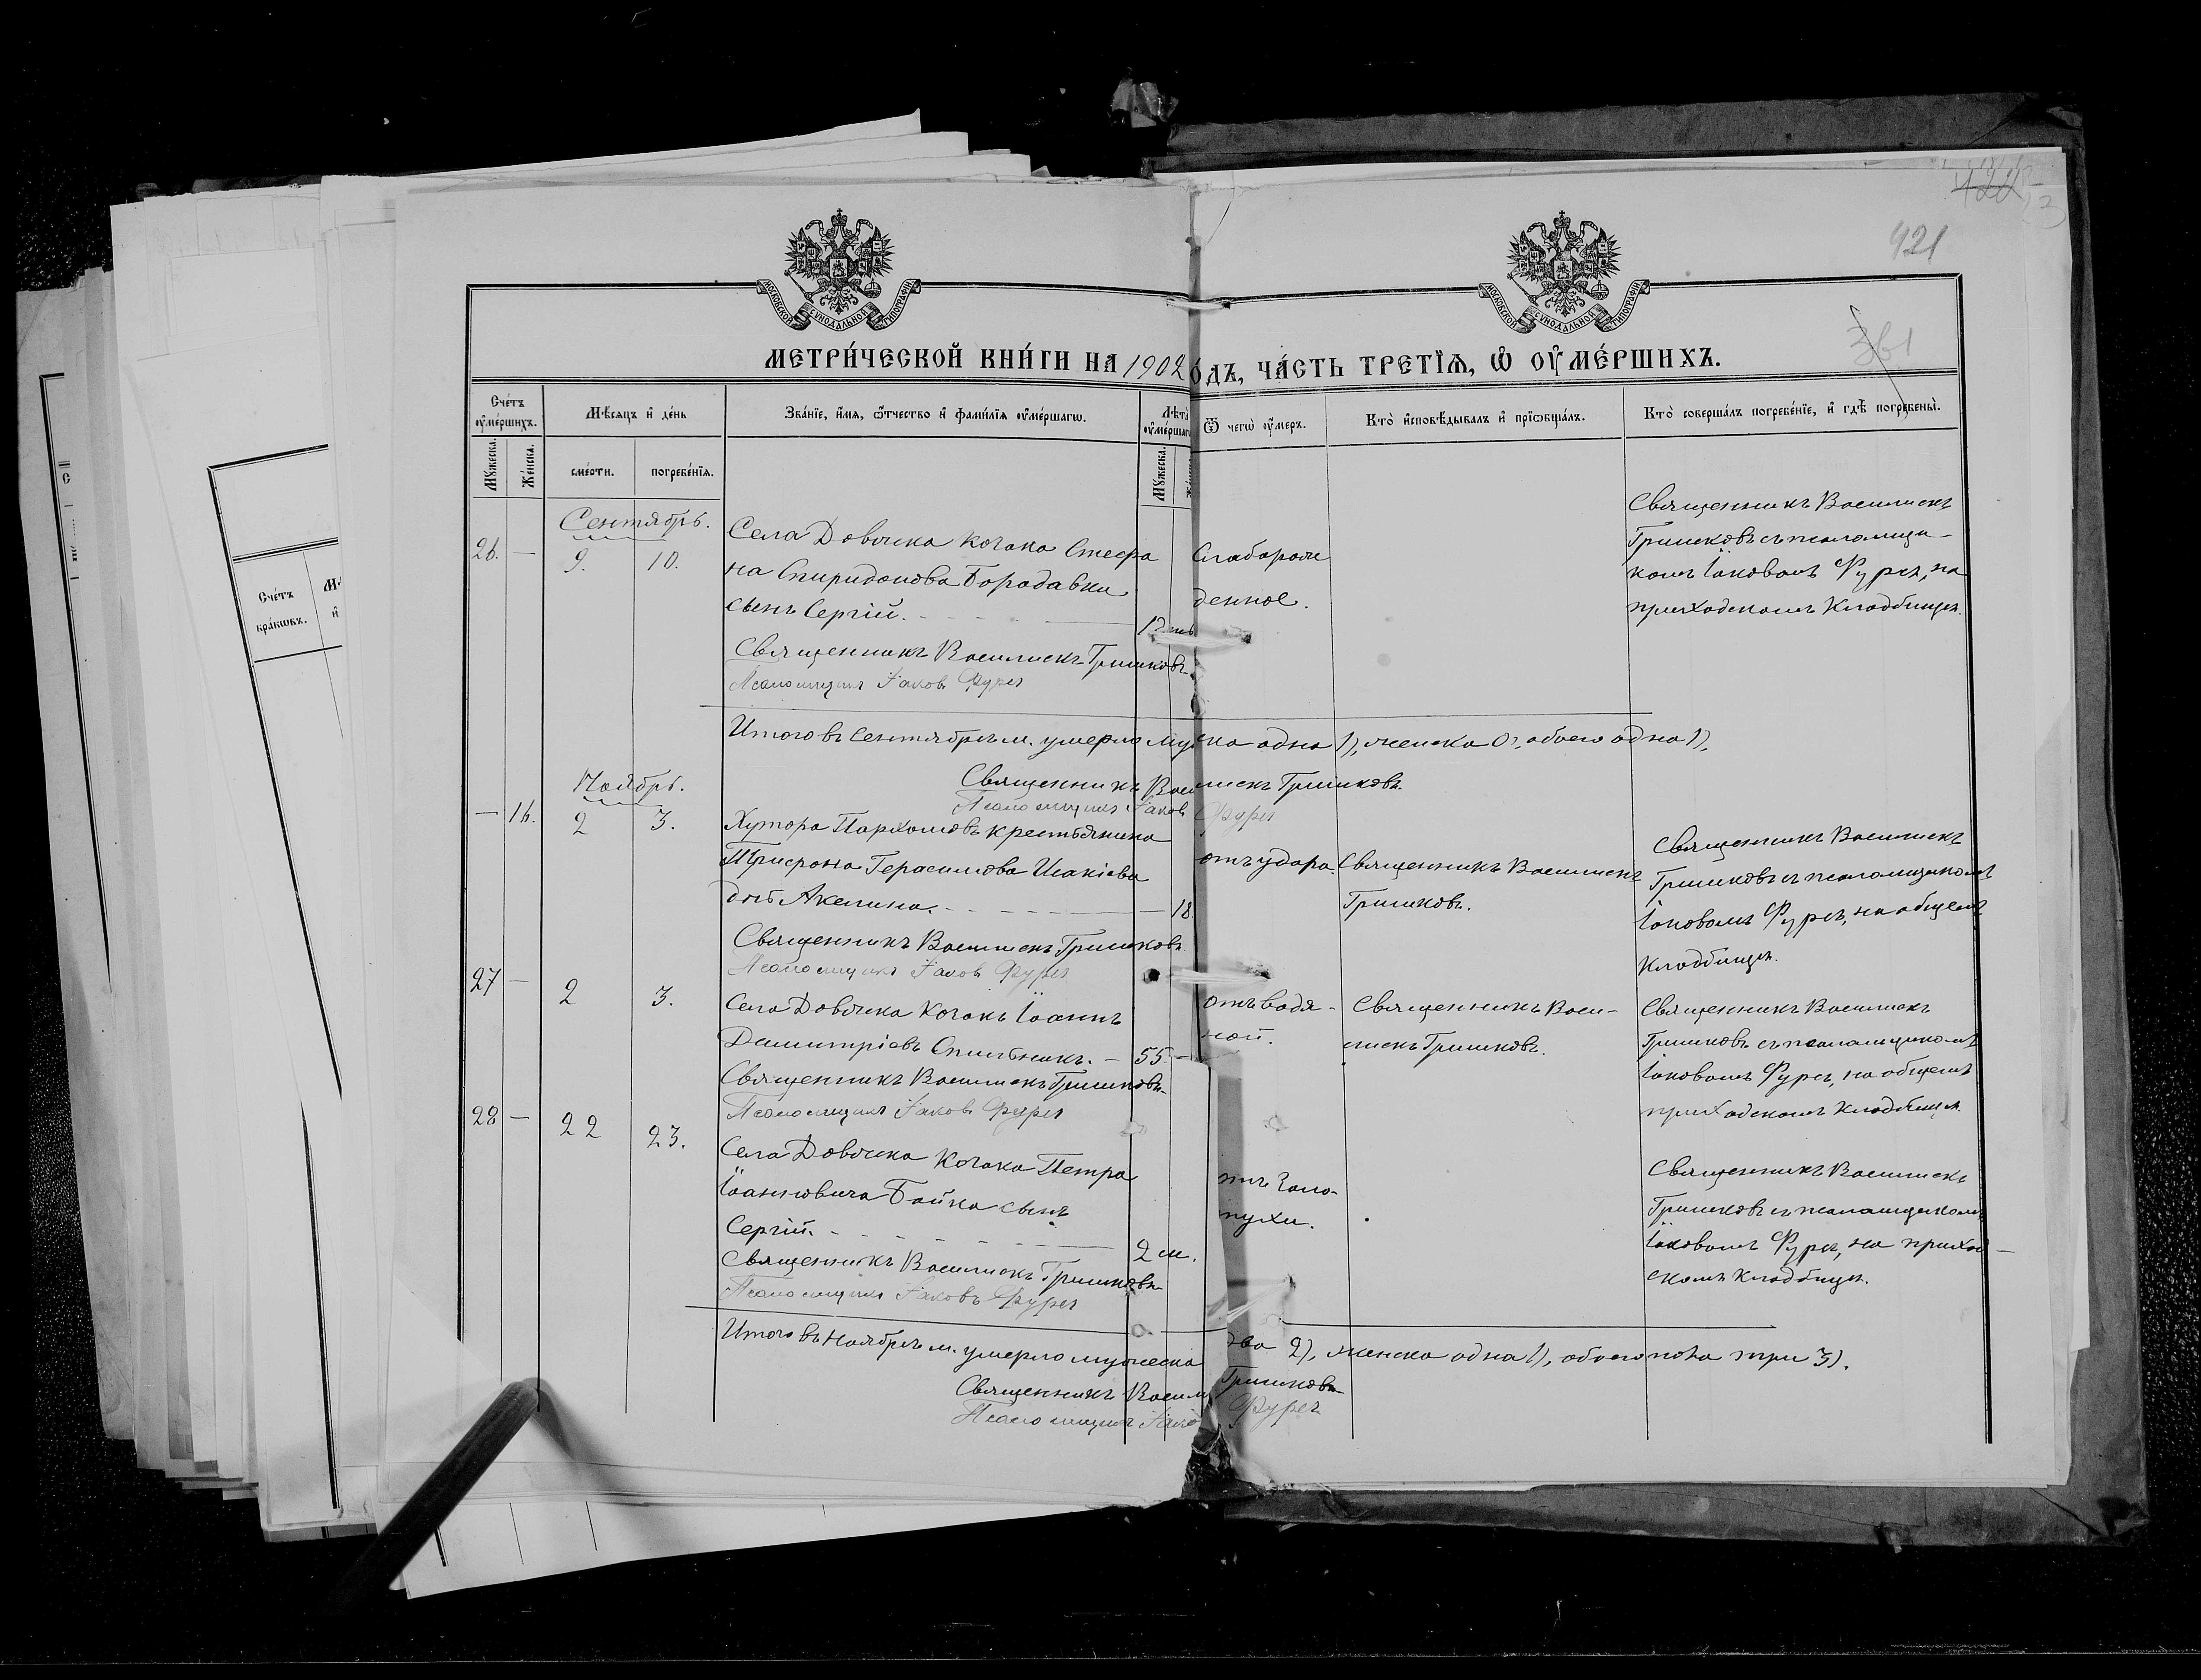 421
МОСКОВСКОЙ СУНОДАЛЬНОЙ ТИПОГРАФІИ
МОСКОВСКОЙ СУНОДАЛЬНОЙ ТИПОГРАФІИ
МЕТРИ́ЧЕСКОЙ КНИ́ГИ НА 1902 ОДЪ, ЧА́СТЬ ТРЕТЇѦ, Ѡ ОУМЕ́РШИХЪ.
Сче́тъ оуме́ршихъ.
Мѣсяцъ и де́нь
Зва́нїе, и́мя, ѿтчество и фами́лїя оуме́ршагѡ.
Лѣта оуме́ршаг
Ѿ чегѡ оумеръ.
Кто̀ исповѣдывалъ и прїѡбщалъ.
Кто̀ соверша́лъ погребе́нїе, и гдѣ погребены̀.
Мꙋжеска.
Же́нска.
сме́рти.
погребе́нїя.
Мꙋжеска.
Сентябрь.
26. — 9. 10.
Села Довжика козака Стефа
на Спиридонова Бородавки
сынъ Сергій.
Слаборож
денное.
Священникъ Василискъ
Гришковъ съ псаломщи-
комъ Іаковомъ Фурса, на
приходскомъ кладбищѣ.
Священникъ Василискъ Гришковъ.
Псаломщикъ Іаковъ Фурса
Итого въ Сентябрѣ м. умерло муж ска одна 1), женска 0), обоего одна 1),
Священникъ Василискъ Гришковъ.
Псаломщикъ Іаковъ Фурса
Ноябрь.
— 16. 2 3.
Хутора Пархомовъ крестьянина
Трифона Герасимова Исакіева
дочь Акелина. — 18.
отъ удара.
Священникъ Василискъ
Гришковъ.
Священникъ Василискъ
Гришковъ съ псаломщикомъ
Іаковомъ Фурса, на общемъ
кладбищѣ.
Священникъ Василискъ Гришковъ.
Псаломщикъ Іаковъ Фурса
27 — 2 3.
Села Довжика козакъ Іоаннъ
Димитріевъ Спильникъ. — 55 —
отъ водя-
ной.
Священникъ Васи-
лискъ Гришковъ.
Священникъ Василискъ
Гришковъ съ псаломщикомъ
Іаковомъ Фурса, на общемъ
приходскомъ кладбищѣ.
Священникъ Василискъ Гришковъ.
Псаломщикъ Іаковъ Фурса
28 — 22 23.
Села Довжика козака Петра
Іоанновича Бойка сынъ
Сергій. 2 м.
Священникъ Василискъ
Гришковъ съ псаломщикомъ
Іаковомъ Фурса, на приход-
скомъ кладбищѣ.
Священникъ Василискъ Гришковъ
Псаломщикъ Іаковъ Фурса
Итого въ Ноябрѣ м. умерло мужеска два 2), женска одна 1), обоего пола три 3).
Священникъ Васили Гришковъ
Псаломщикъ Іако Фурса
Сче́тъ
бра́кѡвъ.